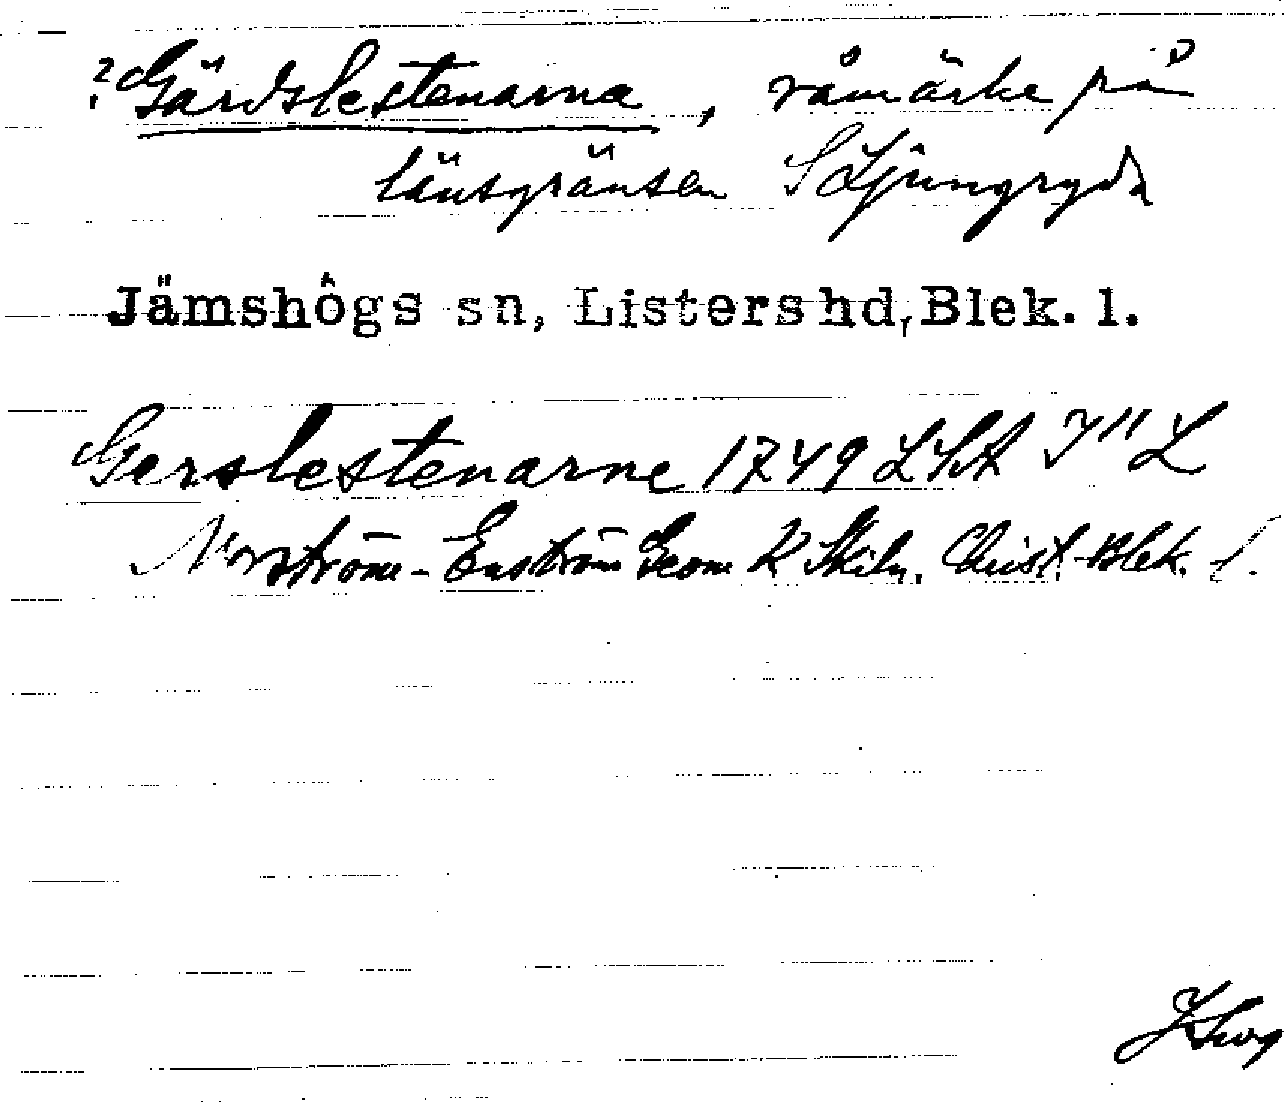 ? Gärdslestenarna, råmärke på
länsgränsen S Ljungryda
Jämshögs sn, Listers hd, Blek. l.
Gerslestenarne 1749 LSA I" L
Norström-Enström Geom K Skiln. Christ.-Blek. l.